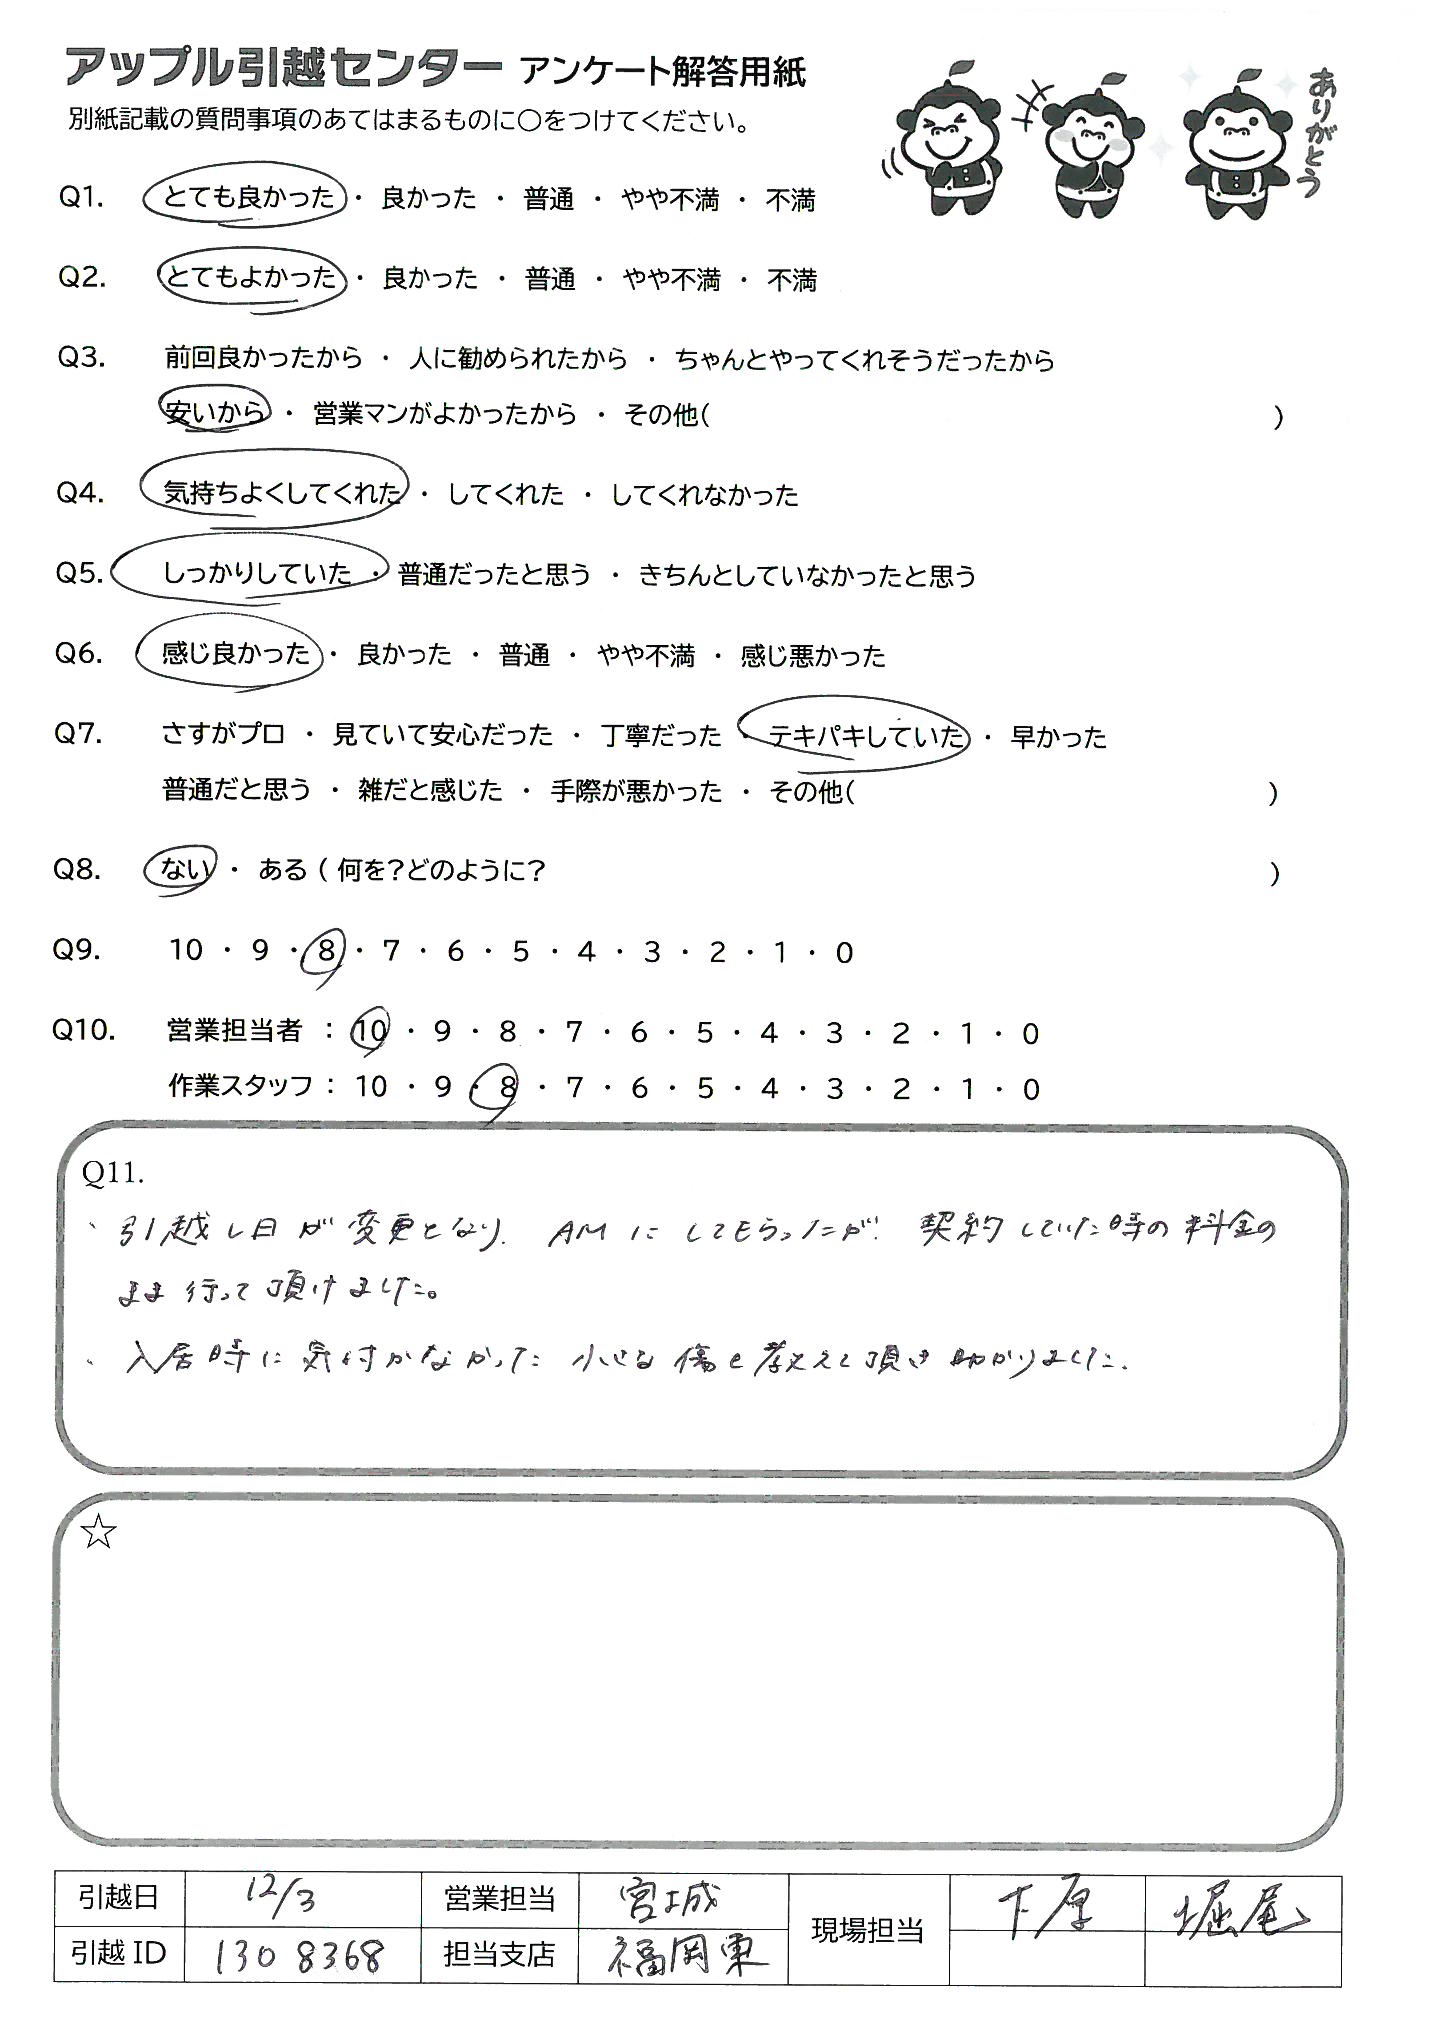 アップル引越センター アンケート解答用紙
別紙記載の質問事項のあてはまるものに○をつけてください。
ありがとう
Q1. とても良かった ・ 良かった ・ 普通 ・ やや不満 ・ 不満
Q2. とてもよかった ・ 良かった ・ 普通 ・ やや不満 ・ 不満
Q3. 前回良かったから ・ 人に勧められたから ・ ちゃんとやってくれそうだったから
安いから ・ 営業マンがよかったから ・ その他( )
Q4. 気持ちよくしてくれた ・ してくれた ・ してくれなかった
Q5. しっかりしていた ・ 普通だったと思う ・ きちんとしていなかったと思う
Q6. 感じ良かった ・ 良かった ・ 普通 ・ やや不満 ・ 感じ悪かった
Q7. さすがプロ ・ 見ていて安心だった ・ 丁寧だった ・ テキパキしていた ・ 早かった
普通だと思う ・ 雑だと感じた ・ 手際が悪かった ・ その他( )
Q8. ない ・ ある ( 何を?どのように? )
Q9. 10 ・ 9 ・ 8 ・ 7 ・ 6 ・ 5 ・ 4 ・ 3 ・ 2 ・ 1 ・ 0
Q10. 営業担当者 : 10 ・ 9 ・ 8 ・ 7 ・ 6 ・ 5 ・ 4 ・ 3 ・ 2 ・ 1 ・ 0
作業スタッフ : 10 ・ 9 ・ 8 ・ 7 ・ 6 ・ 5 ・ 4 ・ 3 ・ 2 ・ 1 ・ 0
Q11.
、引越し日が変更となり、AMにしてもらったが、契約していた時の料金の
まま行って頂けました。
、入居時に気付かなかった小さな傷を教えて頂き助かりました.
☆
引越日 12/3 営業担当 宮城 現場担当 下原 堀尾
引越ID 1308368 担当支店 福岡東